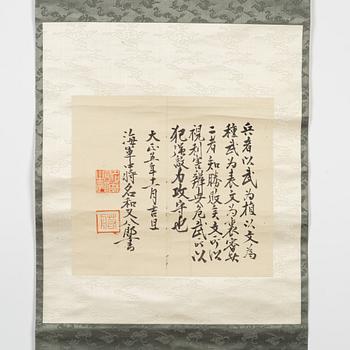 兵者以武為植以文為
種武為表文為裏審此
二者知勝敗矣文所以
視利害辨安危武所以
犯強敵力攻守也
大正五年十一月吉旦
海軍中将名和又八郎書